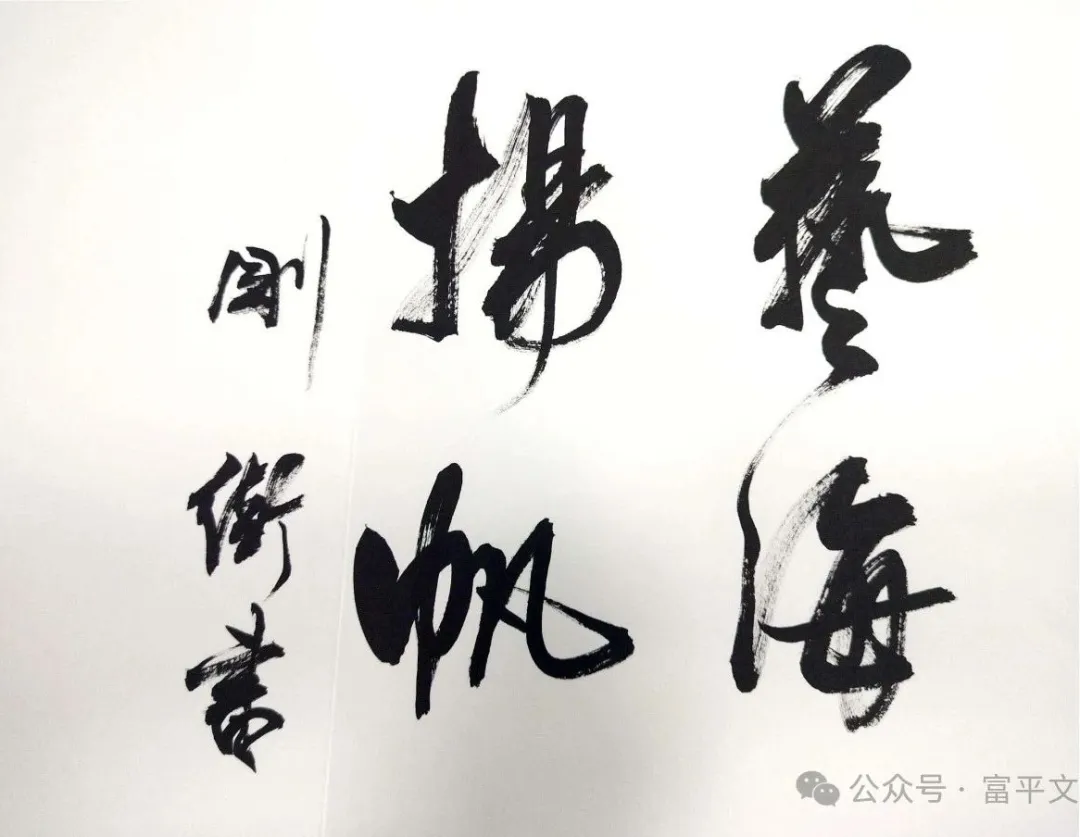 藝海
揚帆
剛衛書
公众号·富平文